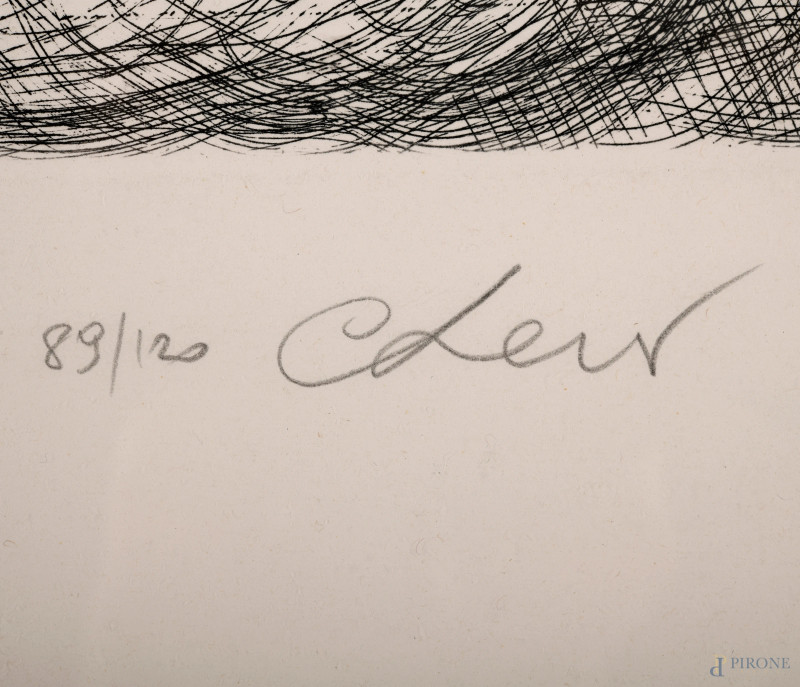 89/120 C Levi
PIRONE